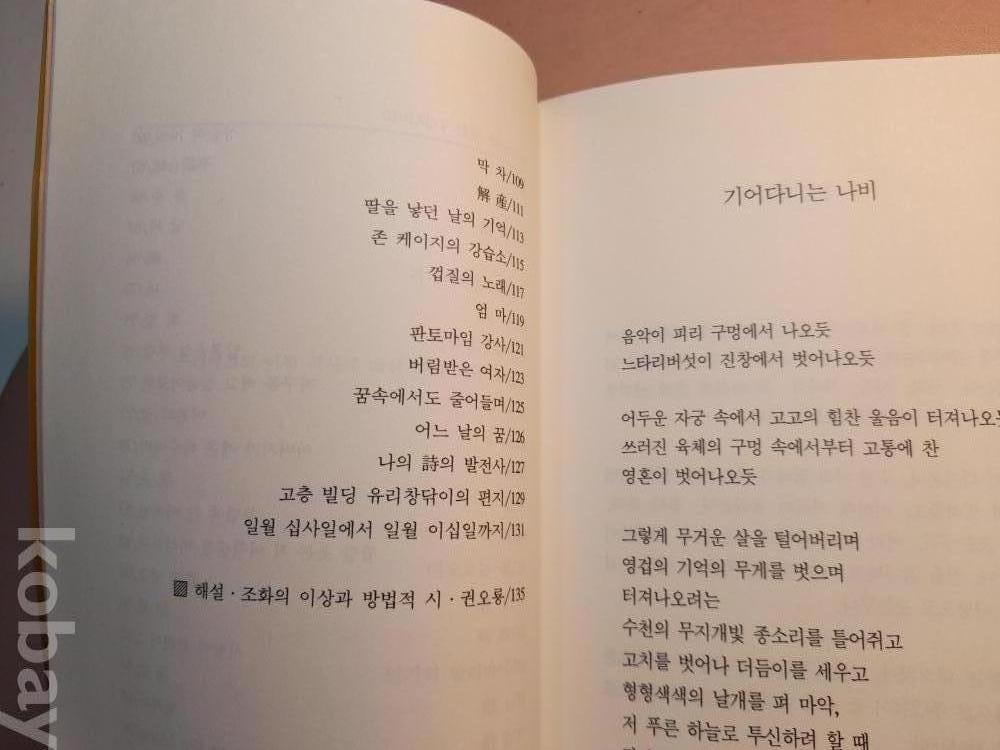 막 차/109
解 産/111
딸을 낳던 날의 기억/113
존 케이지의 강습소/115
껍질의 노래/117
엄 마/119
판토마임 강사/121
버림받은 여자/123
꿈속에서도 줄어들며/125
어느 날의 꿈/126
나의 詩의 발전사/127
고층 빌딩 유리창닦이의 편지/129
일월 십사일에서 일월 이십일까지/131
▨ 해설 · 조화의 이상과 방법적 시 · 권오룡/135
기어다니는 나비
음악이 피리 구멍에서 나오듯
느타리버섯이 진창에서 벗어나오듯
어두운 자궁 속에서 고고의 힘찬 울음이 터져나오듯
쓰러진 육체의 구멍 속에서부터 고통에 찬
영혼이 벗어나오듯
그렇게 무거운 살을 털어버리며
영겁의 기억의 무게를 벗으며
터져나오려는
수천의 무지개빛 종소리를 틀어쥐고
고치를 벗어나 더듬이를 세우고
형형색색의 날개를 펴 마악,
저 푸른 하늘로 투신하려 할 때
kobay